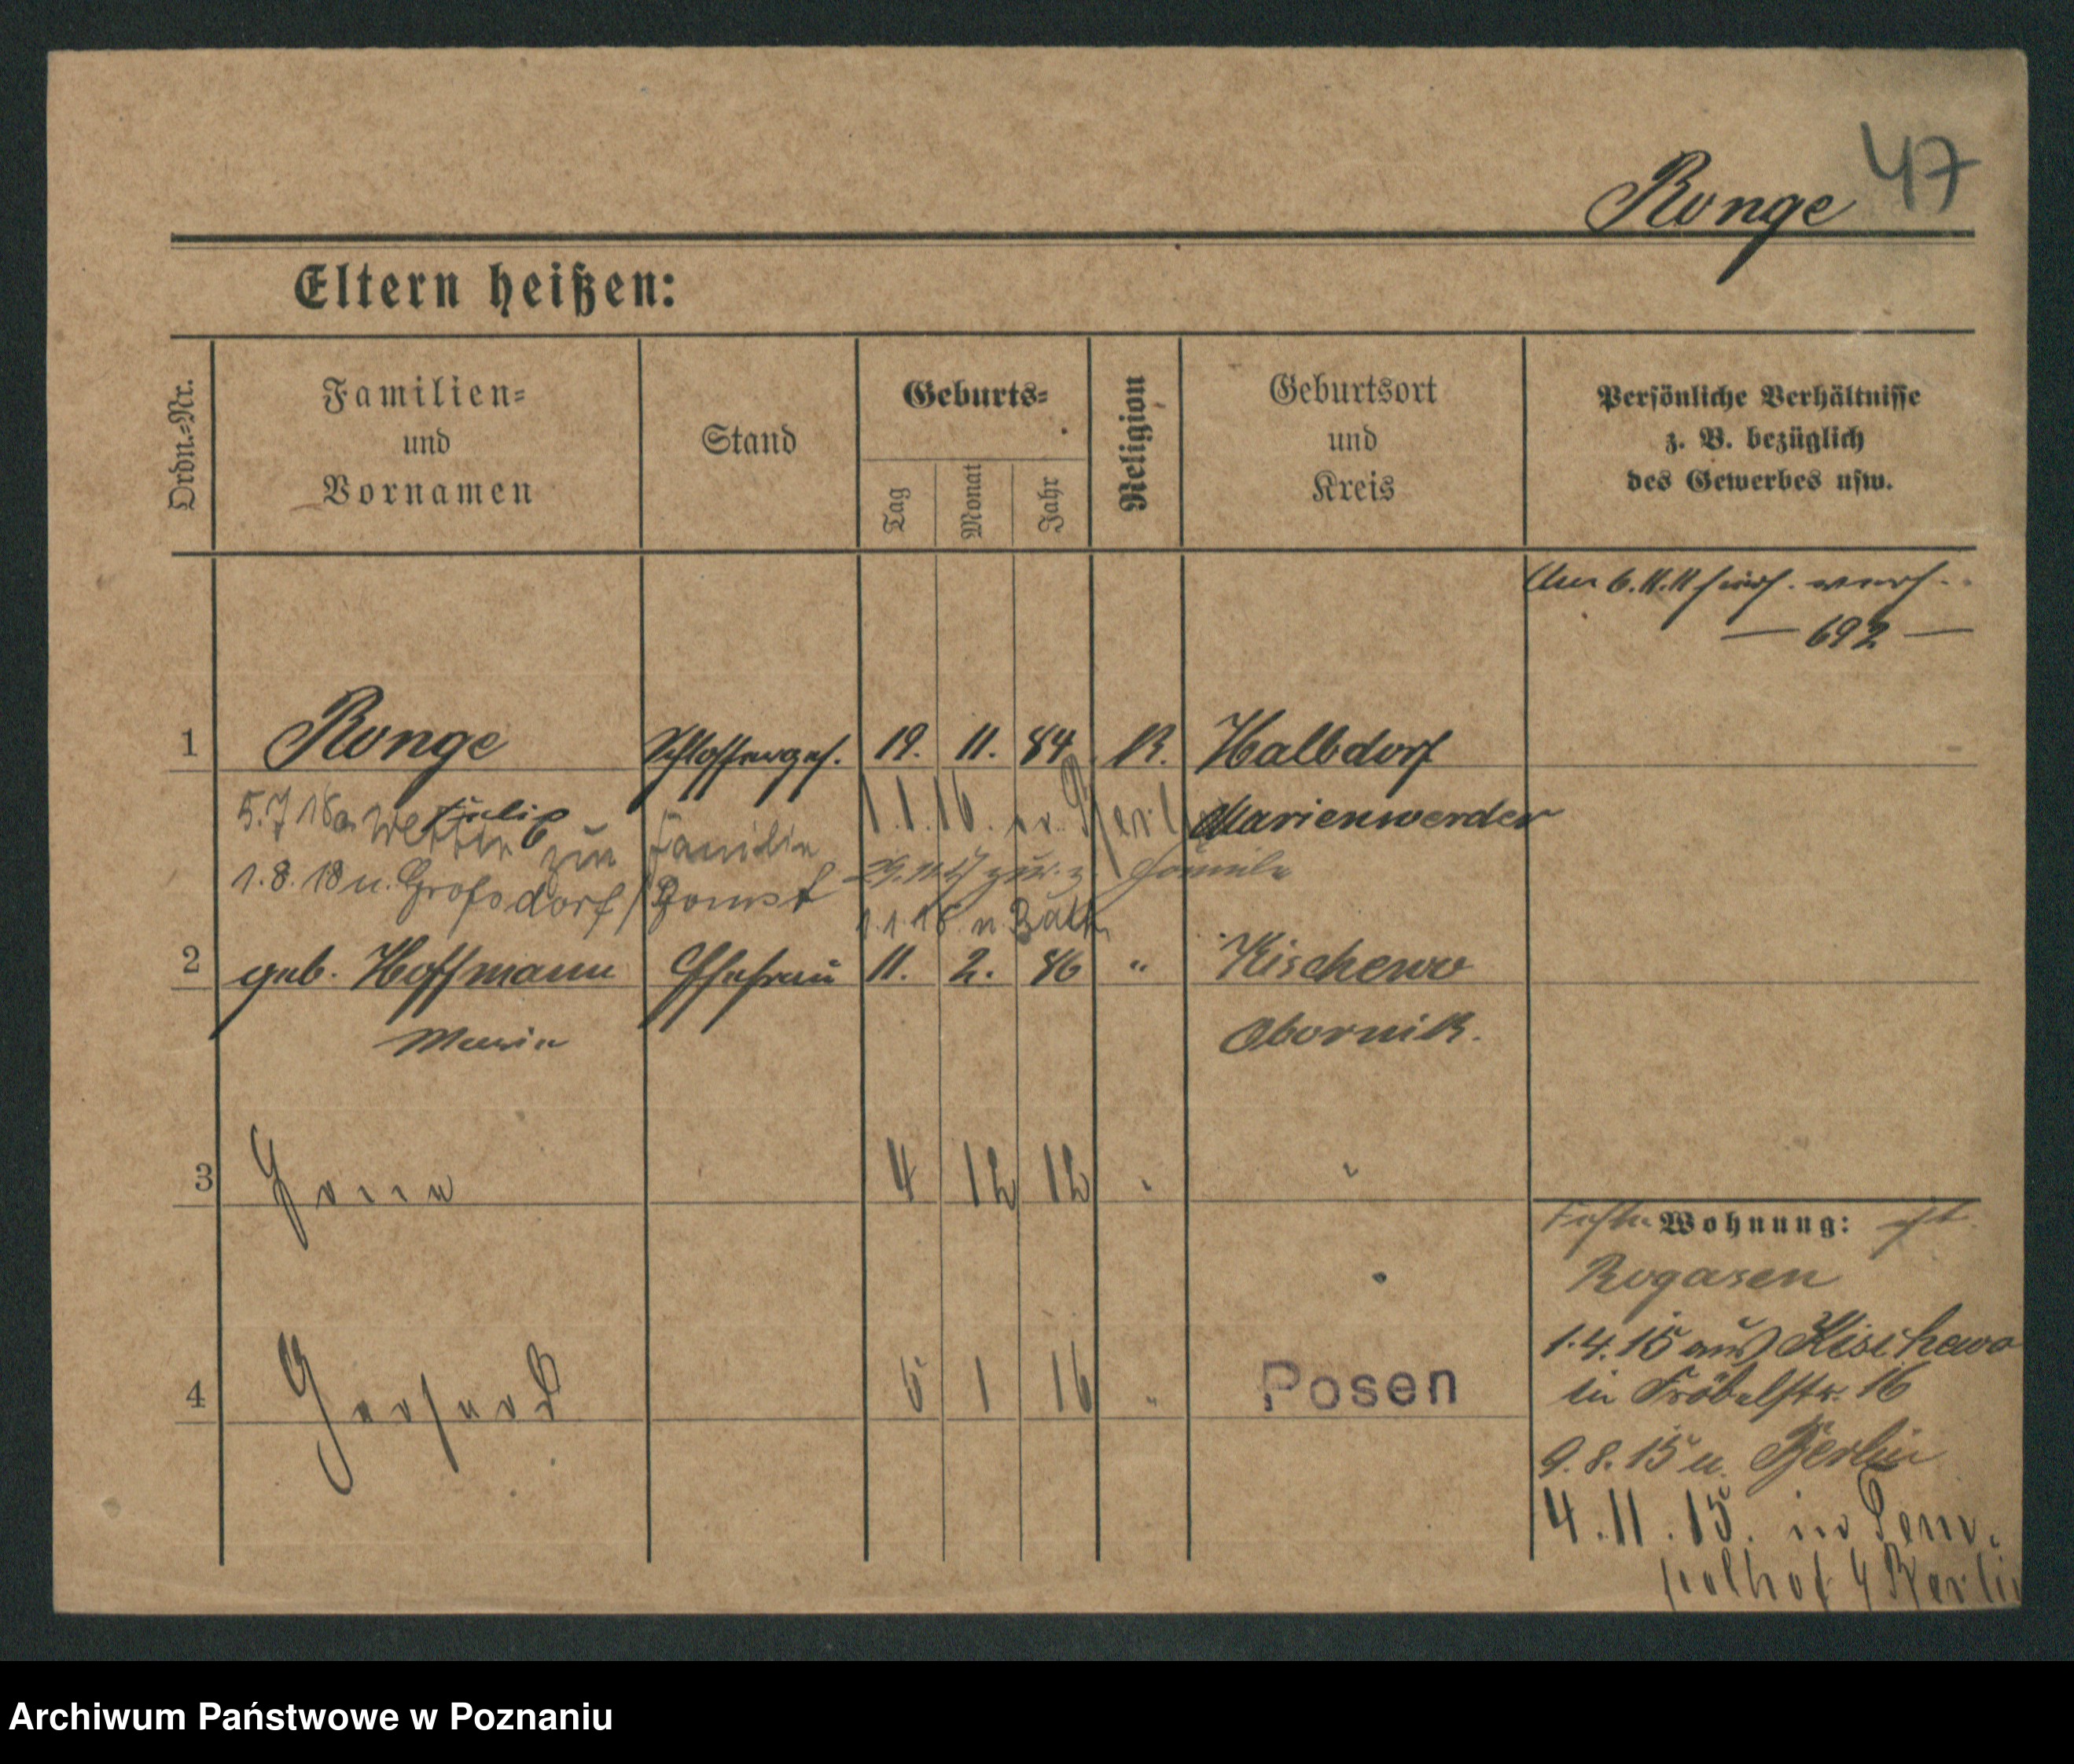 47
Ronge
Eltern heißen:
Ordn.=Nr.
Familien=
und
Vornamen
Stand
Geburts=
Tag
Monat
Jahr
Religion
Geburtsort
und
Kreis
Persönliche Verhältnisse
z. B. bezüglich
des Gewerbes usw.
6.11.11
— 692 —
1 Ronge Schlosserges. 19. 11. 84 K. Halbdorf
Marienwerder
5.7.18 zur Familie
1.1.16
1.8.18 n. Großdorf / Bomst
zur. z. Familie
1.1.18 n.
2 geb. Hoffmann Ehefrau 11. 2. 86 " Kischewo
Marie Obornik.
3 4 12 12 "
4 Gerhard 5 1 16 " Posen
Wohnung:
Rogasen
1.4.15 aus Kischewo
in Fröbelstr. 16
9.8.15 n. Berlin
4.11.15. in Tem-
pelhof b Berlin
Archiwum Państwowe w Poznaniu